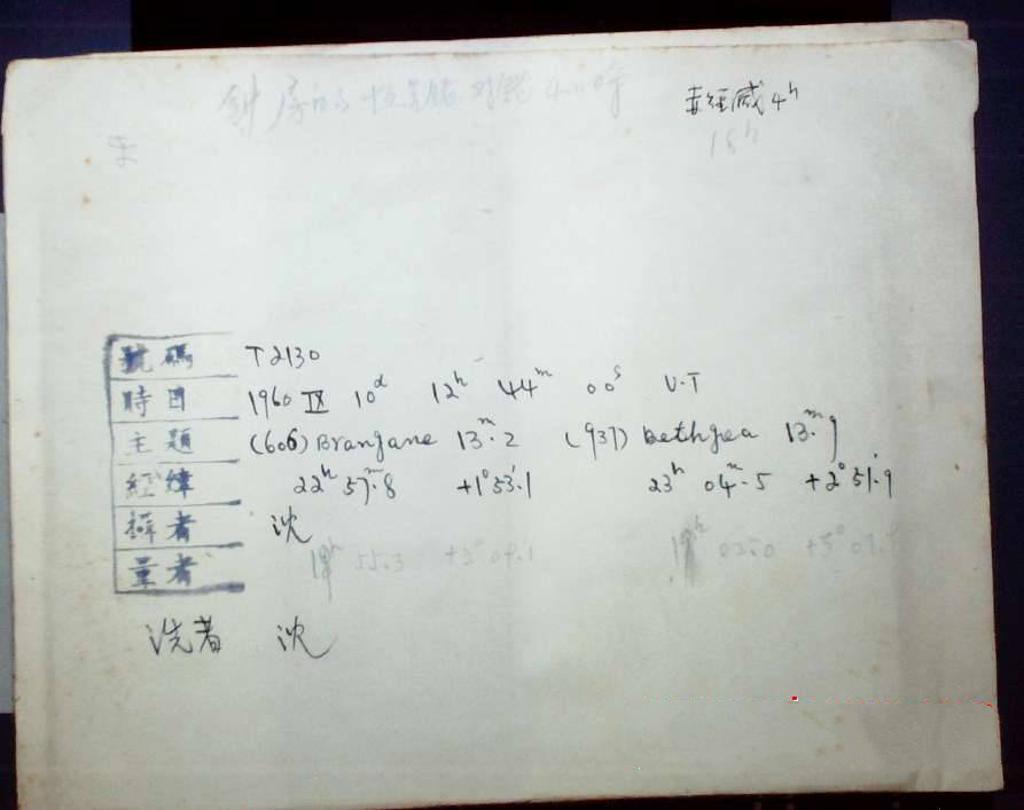 4ʰ
18ʰ
號碼 T2130
時日 1960 IX 10ᵈ 12ʰ 44ᵐ 00ˢ U.T
主題 (606) Brangane 13ᵐ.2 (937) Bethgea 13ᵐ.9
經緯 22ʰ 57ᵐ.8 +1°53'.1 23ʰ 04ᵐ.5 +2°51'.9
攝者 沈
量者 55.3 +2° 09.1 02.0 +3°
洗者 沈